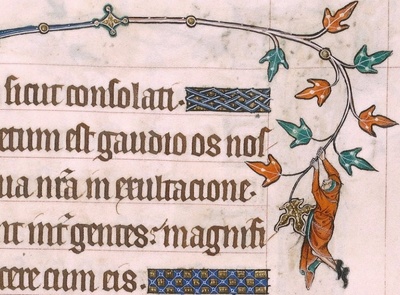 sicut consolati.
etum est gaudio os nos
ua nr̄a in exultacione.
nt int̄ gentes: magnifi
cere cum eis.